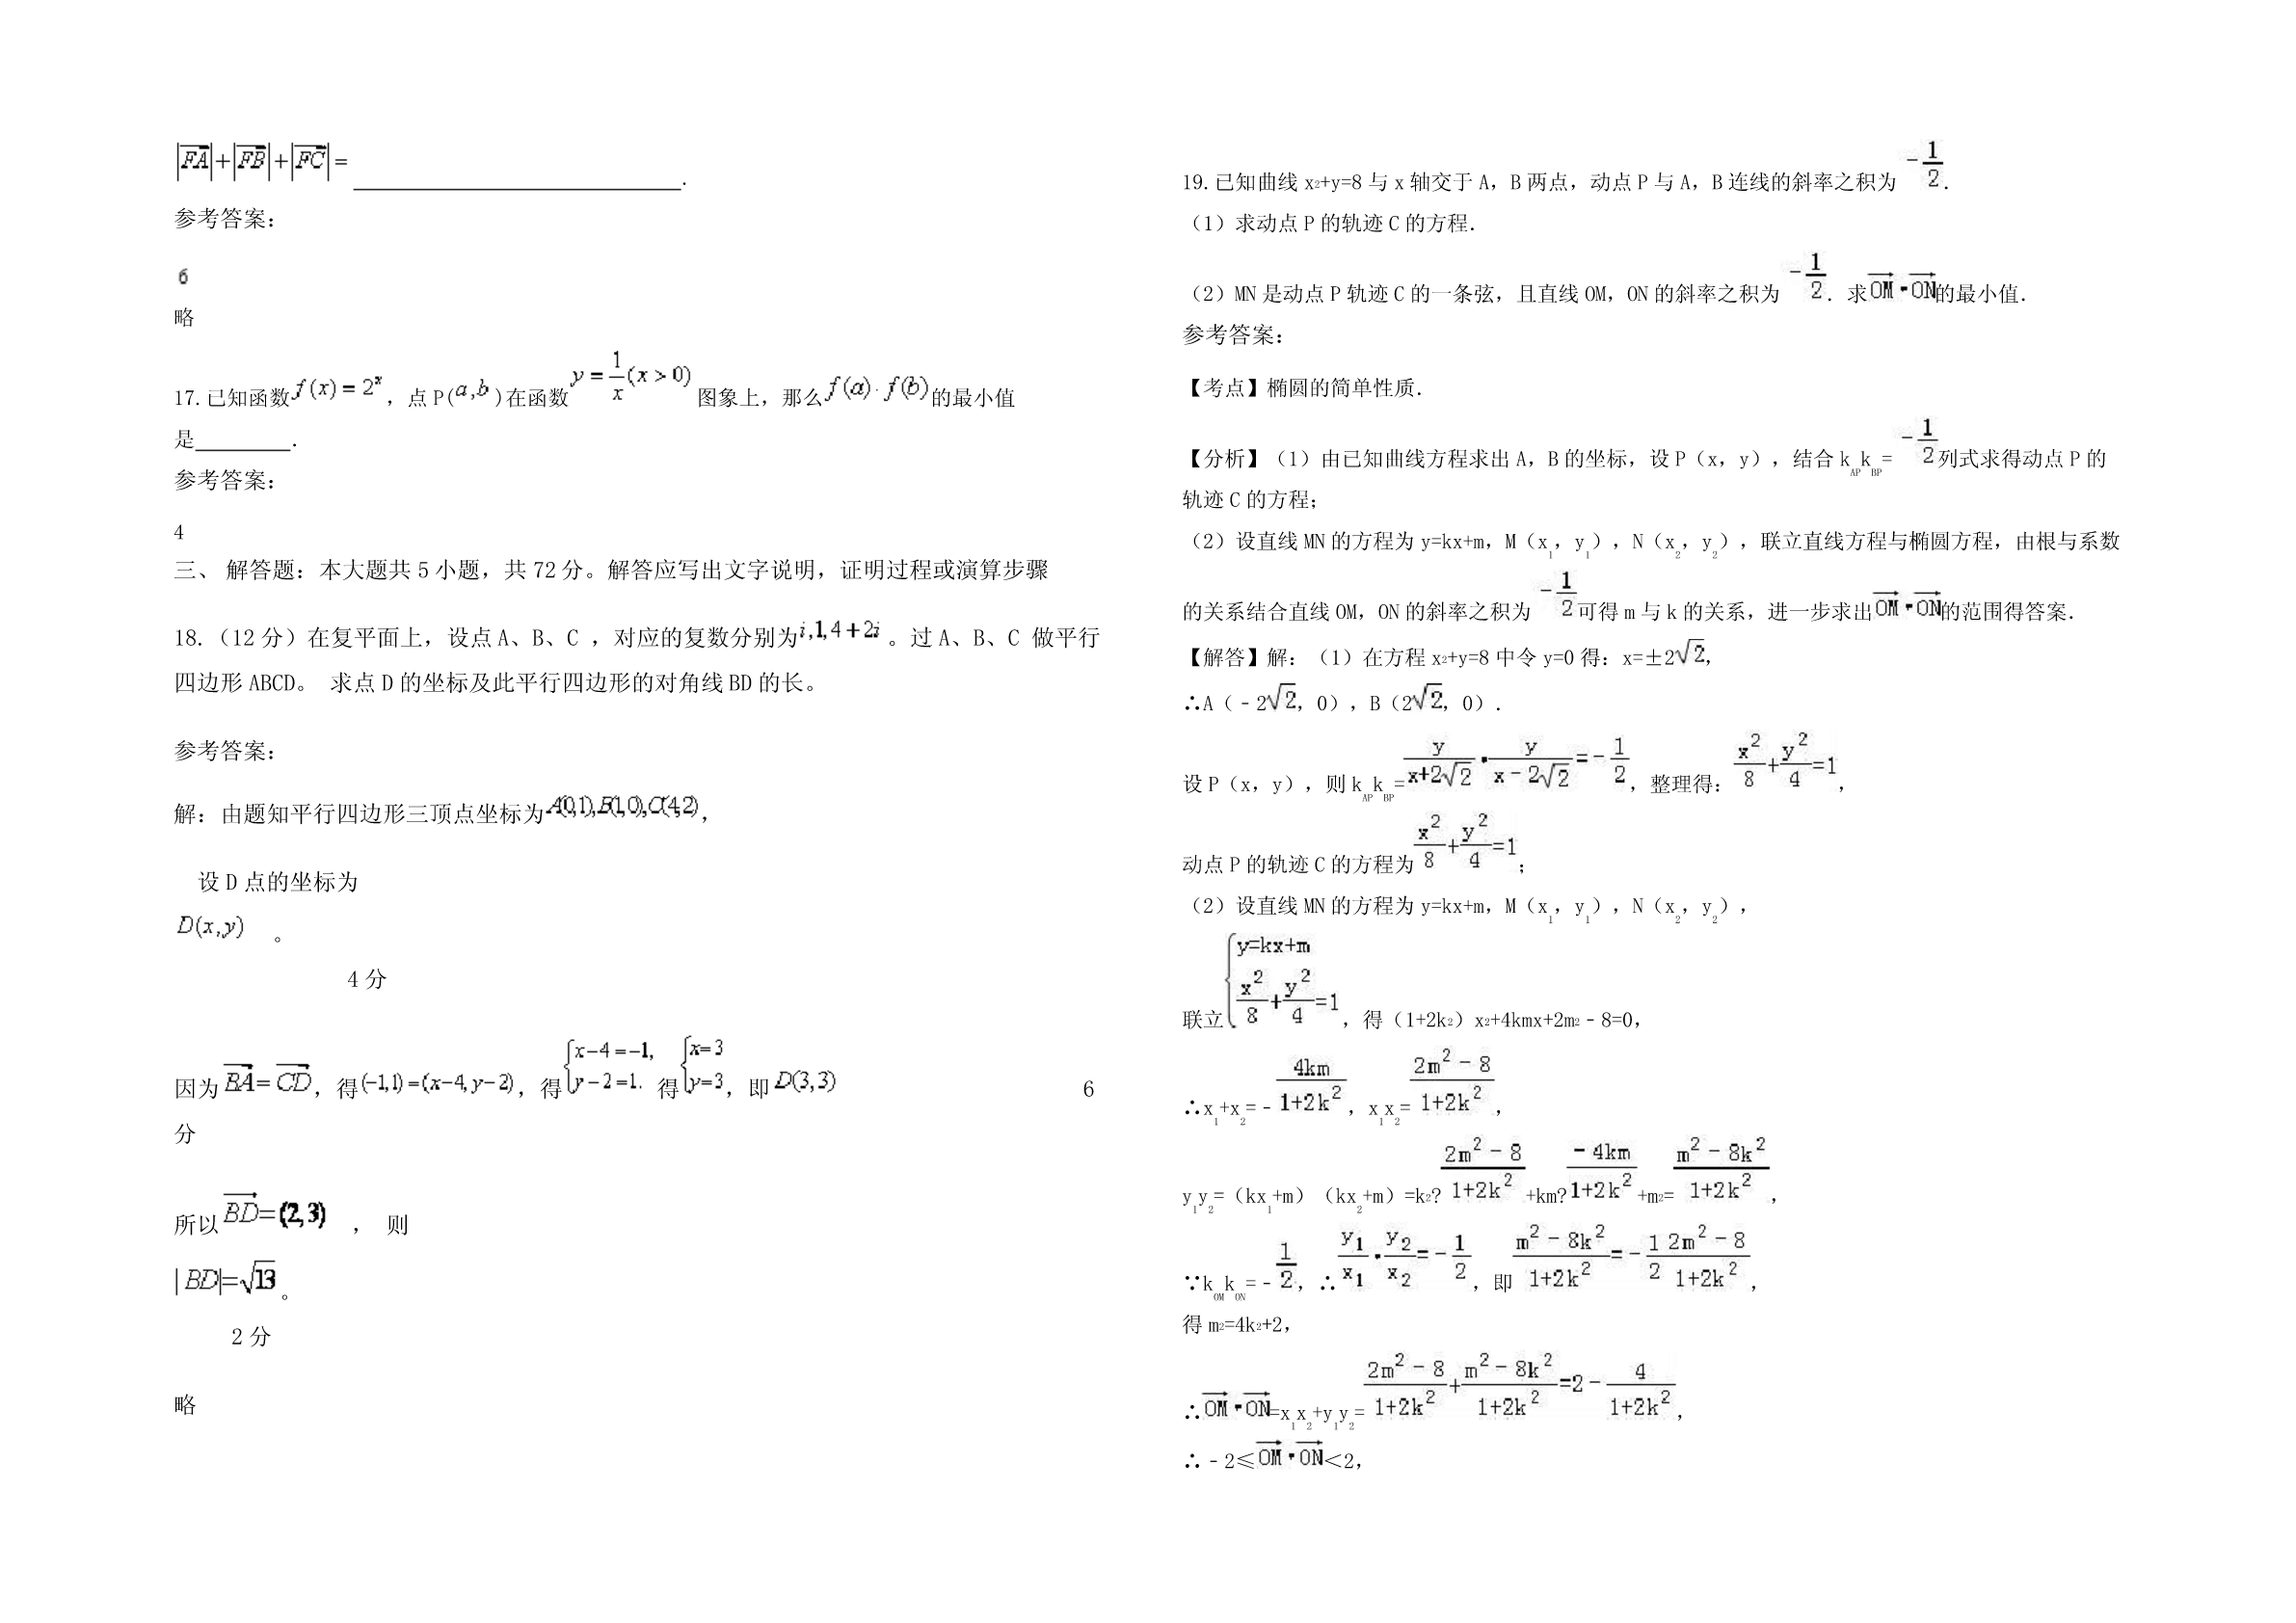 |FA|+|FB|+|FC|= ______.
参考答案：
6
略
17.已知函数f(x)=2^x，点P(a,b)在函数y=1/x(x>0)图象上，那么f(a)·f(b)的最小值
是________.
参考答案：
4
三、 解答题：本大题共5小题，共72分。解答应写出文字说明，证明过程或演算步骤
18.（12分）在复平面上，设点A、B、C ，对应的复数分别为i,1,4+2i。过A、B、C 做平行
四边形ABCD。 求点D的坐标及此平行四边形的对角线BD的长。
参考答案：
解：由题知平行四边形三顶点坐标为A(0,1),B(1,0),C(4,2)，
设D点的坐标为
D(x,y) 。
4分
因为BA=CD，得(-1,1)=(x-4,y-2)，得{x-4=-1, y-2=1. 得{x=3 y=3，即D(3,3) 6
分
所以BD=(2,3) ， 则
|BD|=√13。
2分
略
19.已知曲线x2+y=8与x轴交于A，B两点，动点P与A，B连线的斜率之积为-1/2.
（1）求动点P的轨迹C的方程.
（2）MN是动点P轨迹C的一条弦，且直线OM，ON的斜率之积为-1/2. 求OM·ON的最小值.
参考答案：
【考点】椭圆的简单性质.
【分析】（1）由已知曲线方程求出A，B的坐标，设P（x，y），结合kAPkBP=-1/2列式求得动点P的
轨迹C的方程；
（2）设直线MN的方程为y=kx+m，M（x1，y1），N（x2，y2），联立直线方程与椭圆方程，由根与系数
的关系结合直线OM，ON的斜率之积为-1/2可得m与k的关系，进一步求出OM·ON的范围得答案.
【解答】解：（1）在方程x2+y=8中令y=0得：x=±2√2，
∴A（﹣2√2，0），B（2√2，0）.
设P（x，y），则kAPkBP=y/(x+2√2)·y/(x-2√2)=-1/2，整理得：x²/8+y²/4=1，
动点P的轨迹C的方程为x²/8+y²/4=1；
（2）设直线MN的方程为y=kx+m，M（x1，y1），N（x2，y2），
联立{y=kx+m x²/8+y²/4=1，得（1+2k2）x2+4kmx+2m2﹣8=0，
∴x1+x2=﹣4km/(1+2k²)，x1x2=(2m²-8)/(1+2k²)，
y1y2=（kx1+m）（kx2+m）=k2?(2m²-8)/(1+2k²)+km?(-4km)/(1+2k²)+m2=(m²-8k²)/(1+2k²)，
∵kOMkON=﹣1/2，∴y1/x1·y2/x2=-1/2，即(m²-8k²)/(1+2k²)=-1/2 (2m²-8)/(1+2k²)，
得m2=4k2+2，
∴OM·ON=x1x2+y1y2=(2m²-8)/(1+2k²)+(m²-8k²)/(1+2k²)=2-4/(1+2k²)，
∴﹣2≤OM·ON＜2，